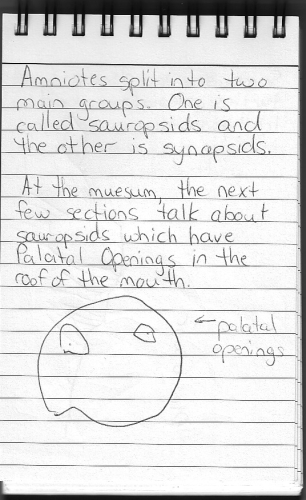 Amniotes split into two
main groups. One is
called sauropsids and
the other is synapsids.
At the muesum, the next
few sections talk about
sauropsids which have
Palatal Openings in the
roof of the mouth.
← palatal
openings